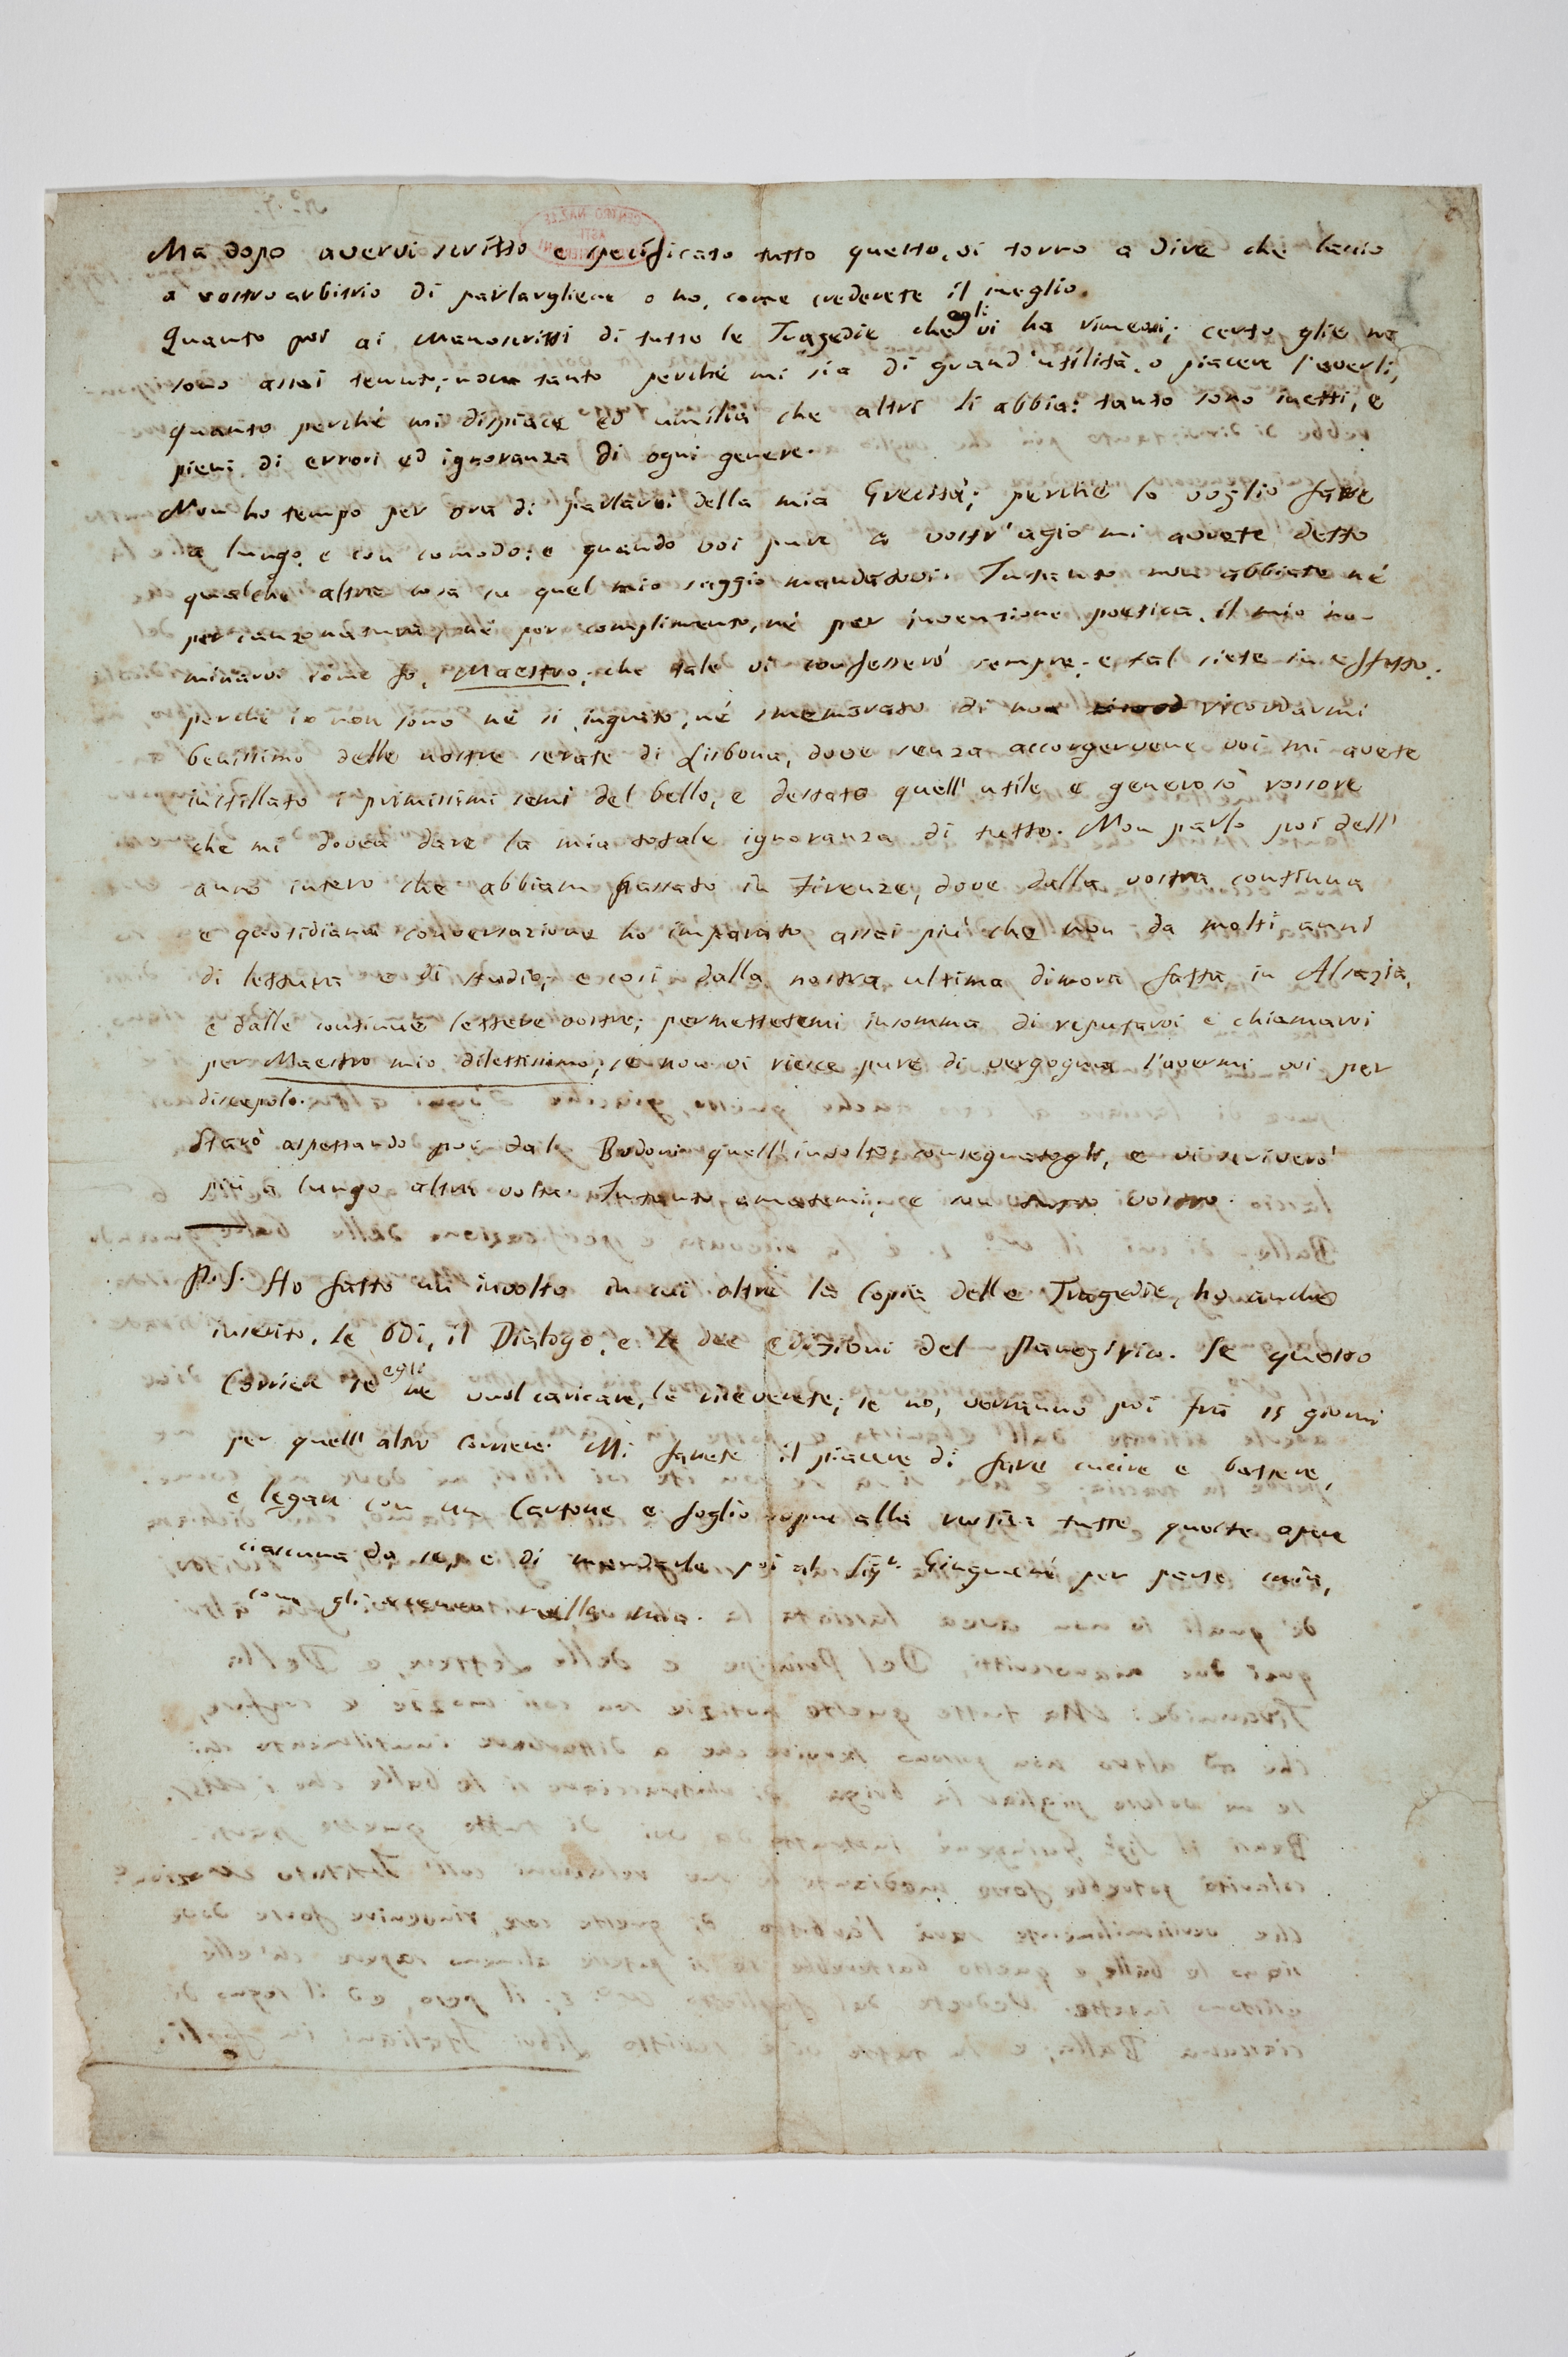 Ma dopo avervi scritto e specificato tutto questo, vi torno a dire che lascio
a vostro arbitrio di parlargliene o no, come crederete il meglio.
Quanto poi ai Manoscritti di tutte le Tragedie che egli vi ha rimessi; certo glie ne
sono assai tenuto; non tanto perché mi sia di grand'utilità, o piacere l'averli,
quanto perché mi dispiace ed umilia che altri li abbia: tanto sono inetti, e
pieni di errori ed ignoranza di ogni genere.
Non ho tempo per ora di parlarvi della mia Grecità; perché lo voglio fare
a lungo, e con comodo: e quando voi pure a vostr'agio mi avrete detto
qualche altra cosa su quel mio saggio mandatovi. Intanto non abbiate né
per canzonatura, né per complimento, né per invenzione poetica, il mio no-
minarvi come fo, Maestro; che tale vi confesserò sempre; e tal siete in effetto:
perché io non sono né sì ingrato, né smemorato di non ricordarmi
benissimo delle nostre serate di Lisbona, dove senza accorgervene voi mi avete
instillato i primissimi semi del bello, e destato quell'utile e generoso rossore
che mi dovea dare la mia totale ignoranza di tutto. Non parlo poi dell'
anno intero che abbiam passato in Firenze, dove dalla vostra continua
e quotidiana conversazione ho imparato assai più che non da molti anni
di lettura e di studio; e così dalla nostra ultima dimora fatta in Alsazia,
e dalle continue lettere vostre; permettetemi insomma di reputarvi e chiamarvi
per Maestro mio dilettissimo, se non vi riesce pure di vergogna l'avermi voi per
discepolo.
Starò aspettando poi dal Bodoni quell'involto consegnatogli, e vi scriverò
più a lungo altra volta. Intanto amatemi, e son tutto vostro.
P.S. Ho fatto un involto in cui oltre la Copia delle Tragedie, ho anche
inserito, le Odi, il Dialogo, e le due edizioni del Panegirico. Se questo
Corriere se egli ne vuol caricare, le riceverete; se no, verranno poi fra 15 giorni
per quell'altro Corriere. Mi farete il piacere di fare cucire e battere,
e legare con un Cartone e foglio sopra alla rustica tutte queste opere
ciascuna da se, e di mandarle poi al Sigr. Ginguené per parte mia,
come gli accenno nella mia.